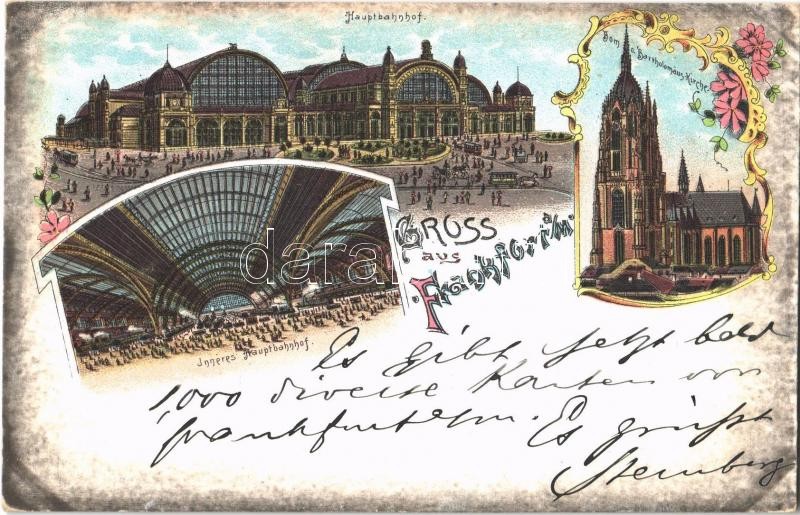 Hauptbahnhof.
Dom u. Bartholomäus-Kirche.
Gross
aus
Frankfurt a/M.
Inneres Hauptbahnhof.
darabanth
Es gibt jetzt bald
1,000 diverse Karten von
Frankfurt a/m. Es grüßt
Sternberg